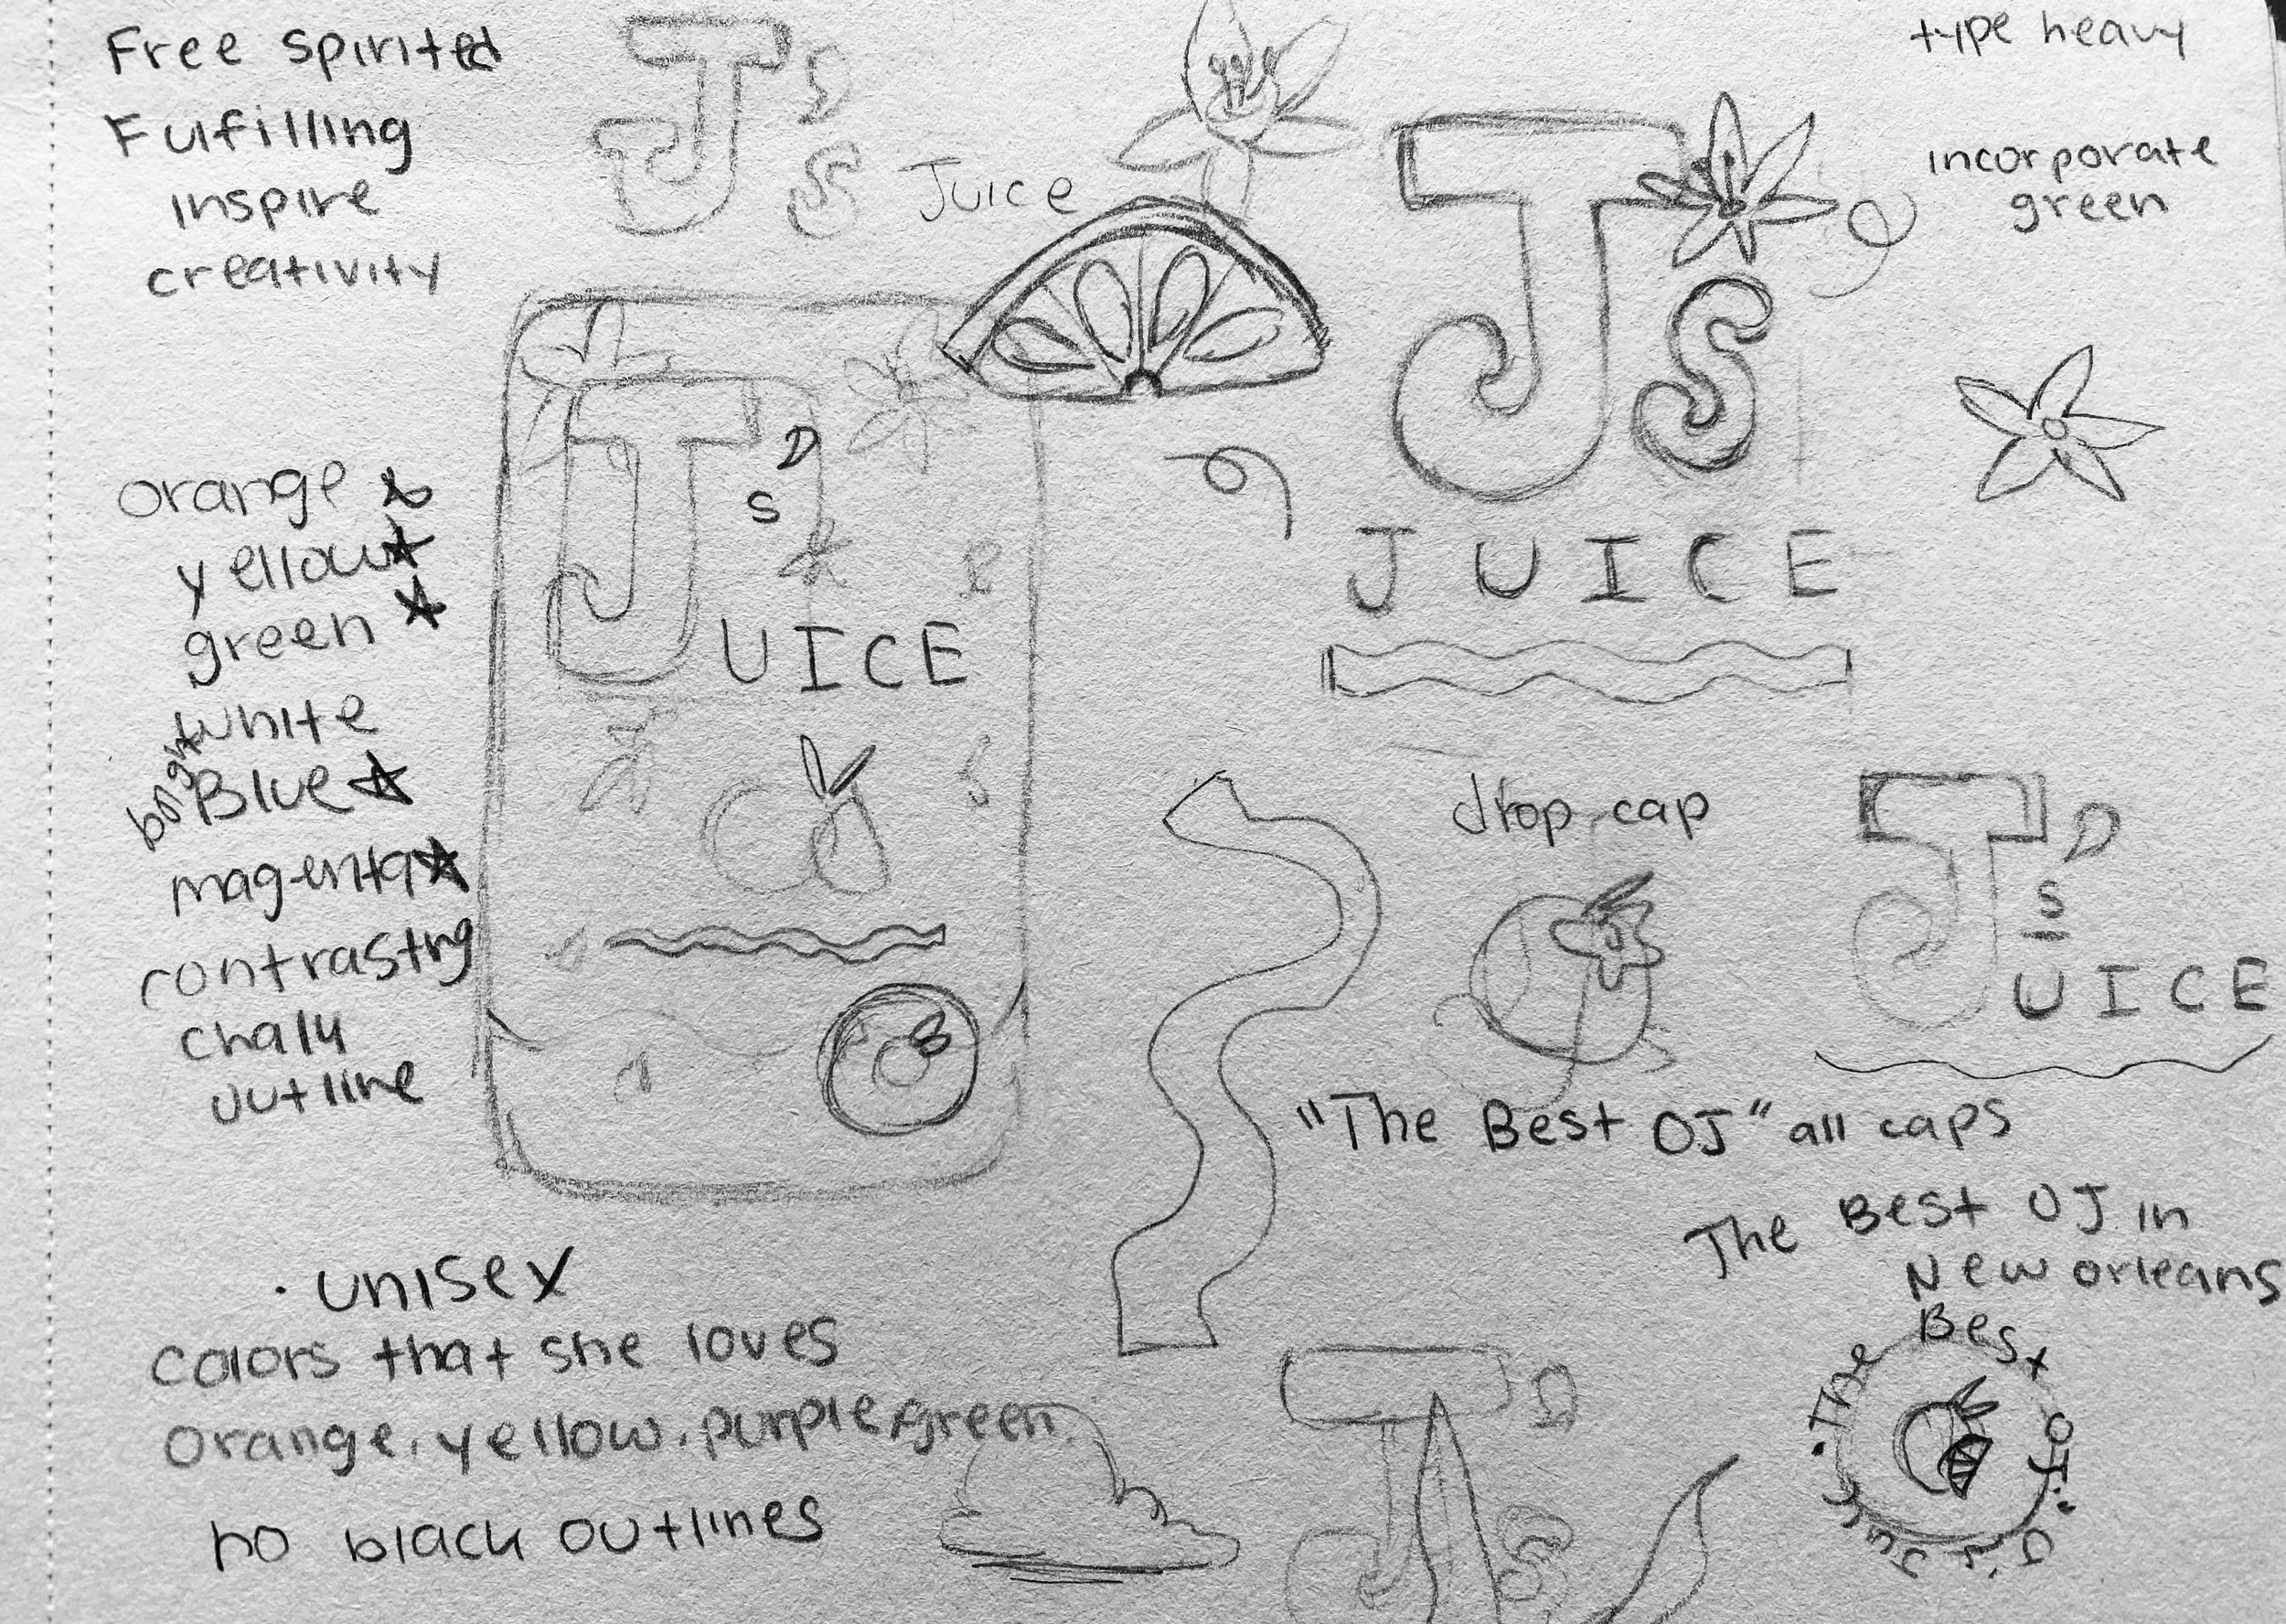 Free spirited
Fulfilling
inspire
creativity
J's
Juice
type heavy
incorporate
green
J's
JUICE
J's
UICE
orange
yellow
green
white
bright
Blue
magenta
contrasting
chalk
outline
drop cap
J's
UICE
"The Best OJ" all caps
The Best OJ in
New Orleans
• The Best OJ •
J's Juice
• unisex
colors that she loves
orange, yellow, purple, green
no black outlines
J